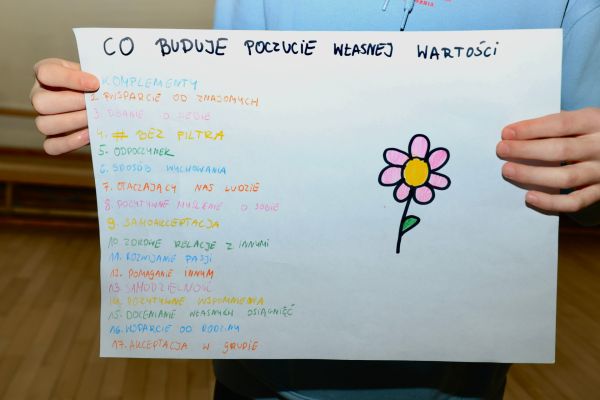 CO BUDUJE POCZUCIE WŁASNEJ WARTOŚCI
1. KOMPLEMENTY
2. WSPARCIE OD ZNAJOMYCH
3. DBANIE O SIEBIE
4. # BEZ FILTRA
5. ODPOCZYNEK
6. SPOSÓB WYCHOWANIA
7. OTACZAJĄCY NAS LUDZIE
8. POZYTYWNE MYŚLENIE O SOBIE
9. SAMOAKCEPTACJA
10. ZDROWE RELACJE Z INNYMI
11. ROZWIJANIE PASJI
12. POMAGANIE INNYM
13. SAMODZIELNOŚĆ
14. POZYTYWNE WSPOMNIENIA
15. DOCENIANIE WŁASNYCH OSIĄGNIĘĆ
16. WSPARCIE OD RODZINY
17. AKCEPTACJA W GRUPIE